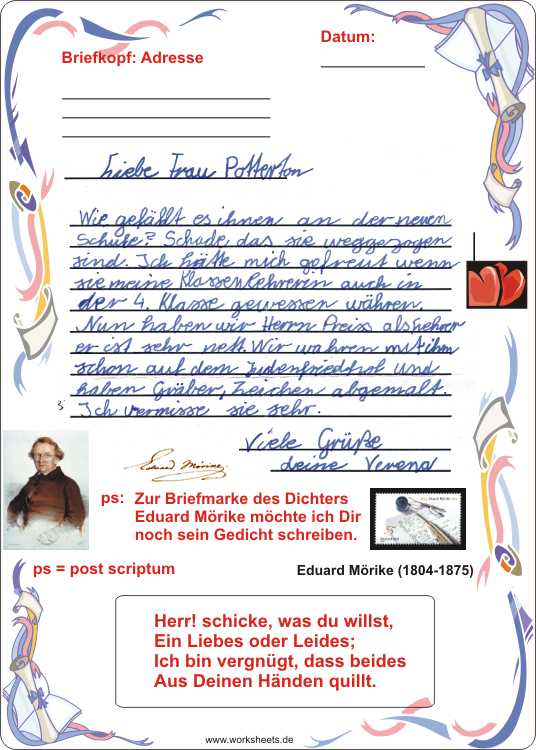 Datum:
Briefkopf: Adresse
Liebe Frau Potterton
Wie gefällt es ihnen an der neuen
Schule? Schade, das sie weggezogen
sind. Ich hätte mich gefreut wenn
sie meine Klassenlehrerin auch in
der 4. Klasse gewessen währen.
Nun haben wir Herrn Preix als Lehrer
er ist sehr nett. Wir wahren mit ihm
schon auf dem Judenfriedhof und
haben Gräber, Zeichen abgemalt.
Ich vermisse sie sehr.
Viele Grüße
deine Verena
Eduard Mörike
ps: Zur Briefmarke des Dichters
Eduard Mörike möchte ich Dir
noch sein Gedicht schreiben.
ps = post scriptum
Eduard Mörike (1804-1875)
Herr! schicke, was du willst,
Ein Liebes oder Leides;
Ich bin vergnügt, dass beides
Aus Deinen Händen quillt.
www.worksheets.de